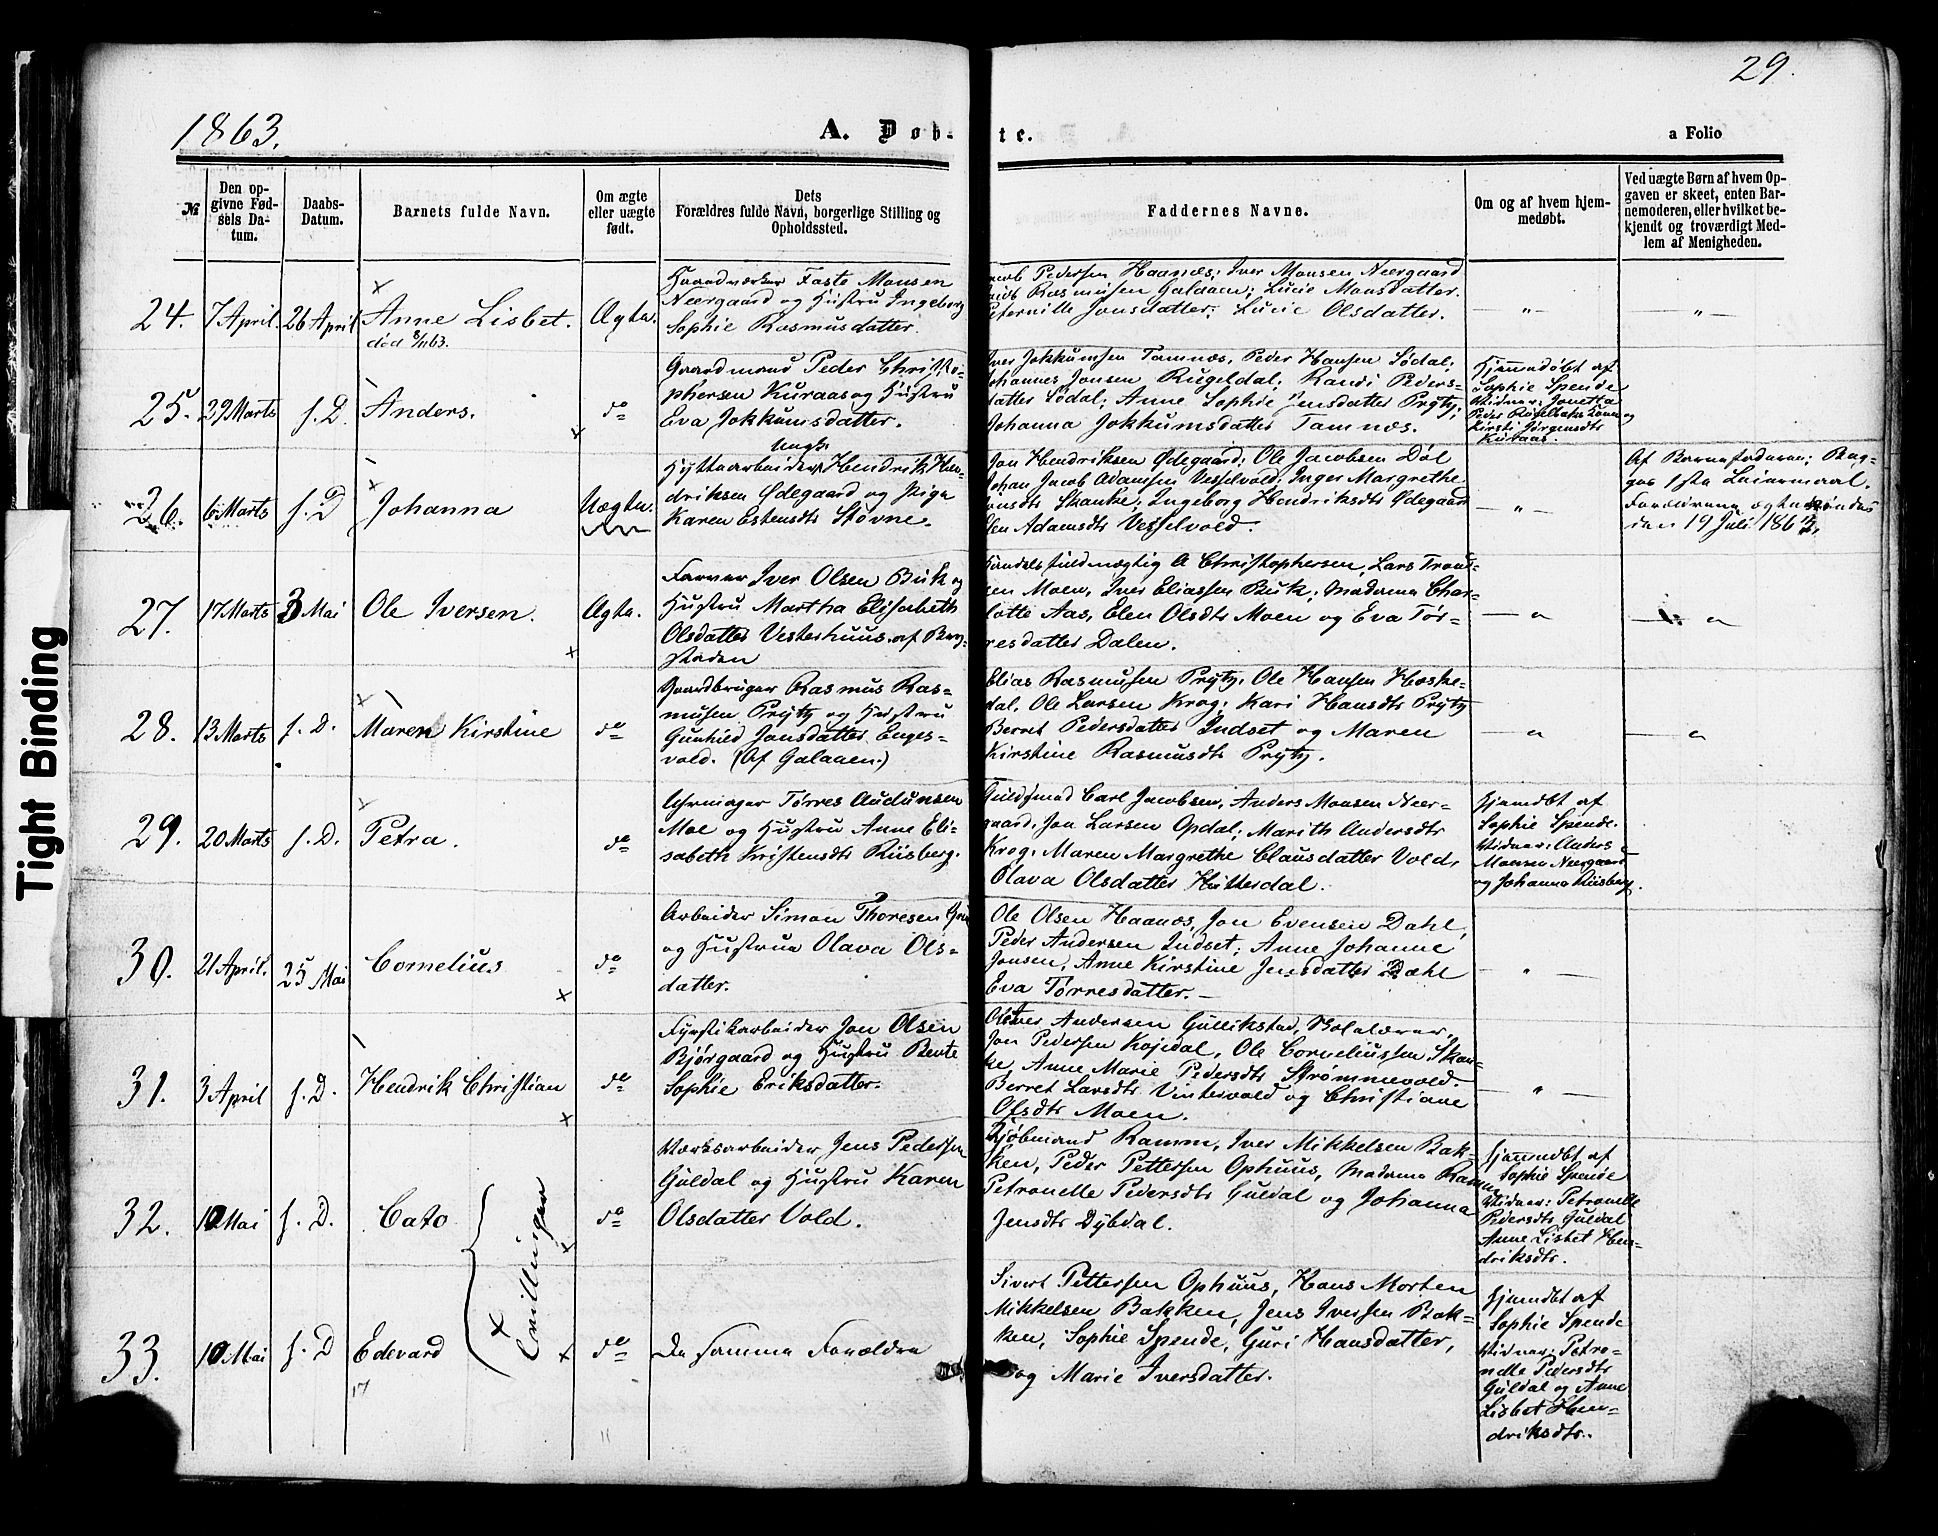 29.
1863.
A. Døb-
te.
a Folio
№
Den op-
givne Fød-
sels Da-
tum.
Daabs-
Datum.
Barnets fulde Navn.
Om ægte
eller uægte
født.
Dets
Forældres fulde Navn, borgerlige Stilling og
Opholdssted.
Faddernes Navne.
Om og af hvem hjem-
medøbt.
Ved uægte Børn af hvem Op-
gaven er skeet, enten Bar-
nemoderen, eller hvilket be-
kjendt og troværdigt Med-
lem af Menigheden.
24. 7 April. 26 April Anne Lisbet. Ægte.
død 8/11 63.
Haandværker Faste Monsen
Neergaard og Hustru Ingeborg
Sophie Rasmusdatter.
Pedersen Haanæs; Iver Monsen Neergaard
Rasmusen Galaaen; Lucie Monsdatter.
Peternille Jonsdatter; Lucie Olsdatter.
— „ —
— „ —
25. 29 Marts f. D. Anders. do
Gaardmand Peder Christo-
phersen Kuraas og Hustru
Eva Jokkumsdatter.
Iver Jokkumsen Tamnæs, Peder Hansen Sødal;
Johannes Jonsen Rugeldal; Randi Peders-
datter Sødal; Anne Sophie Jensdatter Prytz;
Johanna Jokkumsdatter Tamnæs.
Hjemmedøbt af
Sophie Spende
Vidner: Jonetta
Peder Kone og
Kirsti Jørgensdtr
Kuraas.
26. 6 Marts f. D Johanna Uægte.
Ungk.
Hyttearbeider Hendrik Hen-
driksen Ødegaard og Pige
Karen Estensdtr Støvne.
Jon Hendriksen Ødegaard; Ole Jacobsen Døl
Johan Jacob Adamsen Vesselvold; Inger Margrethe
Jonsdt Skanke; Ingeborg Hendriksdtr Ødegaard
Elen Adamsdtr Vesselvold.
— „ —
Af Barnefaderen; Beg-
ges 1ste Leiermaal.
Forældrene
den 19 Juli 1863.
27. 17 Marts 3 Mai Ole Iversen. Ægte.
Farver Iver Olsen Buk og
Hustru Martha Elisabeth
Olsdatter Vesterhuus. af Berg-
staden
Handelsfuldmægtig A Christophersen, Lars Trond-
sen Moen, Iver Eliassen Buk, Madame Char-
lotte Aas, Elen Olsdtr Moen og Eva Tør-
resdatter Dalen.
— „ —
— „ —
28. 13 Marts f. D. Maren Kirstine do
Gaardbruger Rasmus Ras-
musen Prytz og Hustru
Gunhild Jonsdatter Enges-
vold. (Af Galaaen.)
Elias Rasmusen Prytz. Ole Hansen Hoske-
dal. Ole Larsen Krog; Kari Hansdtr Prytz
Berret Pedersdatter Indset og Maren
Kirstine Rasmusdtr Prytz.
— „ —
— „ —
29. 20 Marts f. D. Petra. do
Uhrmager Tørres Audunsen
Moe og Hustru Anne Eli-
sabeth Kristensdtr Riisberg.
Guldsmed Carl Jacobsen, Anders Monsen Neer-
gaard. Jon Larsen Opdal; Marith Andersdtr
Krog. Maren Margrethe Clausdatter Vold,
Olava Olsdatter Hitterdal.
Hjemdbt af
Sophie Spende.
Vidner: Anders
Monsen Neergaard
og Johanna Riisberg.
30. 21 April. 25 Mai Cornelius do
Arbeider Simon Thoresen
og Hustrue Olava Ols-
datter.
Ole Olsen Haanæs, Jon Evensen Dahl,
Peder Andersen Indset; Anne Johanne
Jonsen, Anne Kirstine Jensdatter Dahl
Eva Tørresdatter. —
— „ —
31. 3 April f. D. Hendrik Christian do
Fyrstikarbeider Jon Olsen
Bjørgaard og Hustru Bente
Sophie Eriksdatter.
Andersen Gullikstad,
Jon Pedersen Kojedal, Ole Corneliussen Skan-
ke, Anne Marie Pedersdtr Strømmevold.
Berret Larsdtr Vintervold og Christiane
Olsdtr Moen.
— „ —
32. 10 Mai f. D. Cato do
Tvillinger
Værksarbeider Jens Pedersen
Guldal og Hustru Karen
Olsdatter Vold.
Kjøbmand Ramm, Iver Mikkelsen Bak-
ken, Peder Pettersen Ophuus, Madame Ramm,
Petronelle Pedersdtr Guldal og Johanna
Jensdtr Dybdal.
Hjemmdbt af
Sophie Spende
Vidner: Petronelle
Pedersdtr Guldal
Anne Lisbet Hen-
driksdtr.
33. 10 Mai f. D Edevard do
De samme Forældre
Sivert Pettersen Ophuus, Hans Morten
Mikkelsen Bakken, Jens Iversen Bak-
ken, Sophie Spende, Guri Hansdatter,
og Marie Iversdatter.
Hjemdbt af
Sophie Spende
Vidner: Petro-
nelle Pedersdtr
Guldal og Anne
Lisbet Hen-
driksdtr.
17
Tight Binding